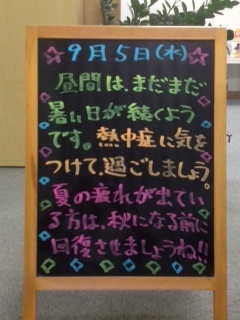 9月5日(水)
昼間は、まだまだ
暑い日が続くよう
です。熱中症に気を
つけて、過ごしましょう。
夏の疲れが出てい
る方は、秋になる前に
回復させましょうね!!